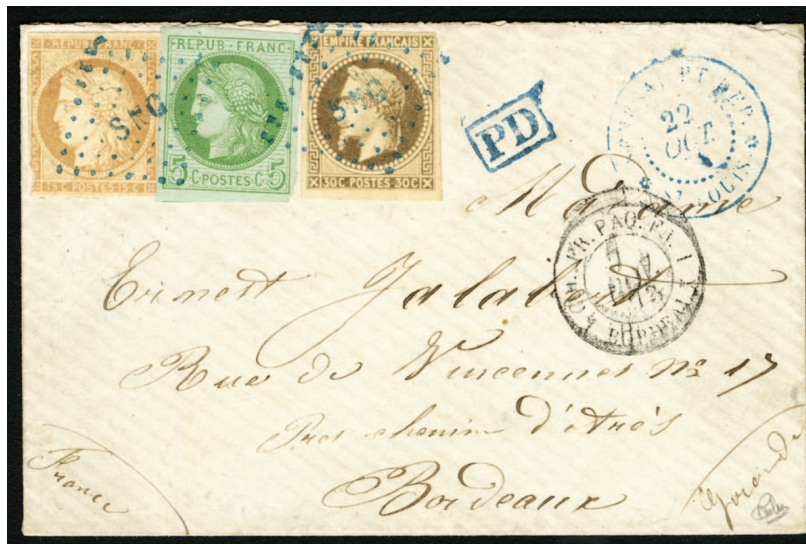 REPUB · FRANC ·
15 C · POSTES · 15 C
SNG
REPUB · FRANC ·
5 C · POSTES · C 5
EMPIRE FRANÇAIS
30C POSTES 30C
SNG
PD
SENEGAL ET DEP.
22
OCT
ST LOUIS
Madame
Ernest Jalabert
COL. FR. PAQ. FR.
BORDEAUX
Rue de Vincennes No 17
Pres chemin d'Arès
Bordeaux
France
Gironde